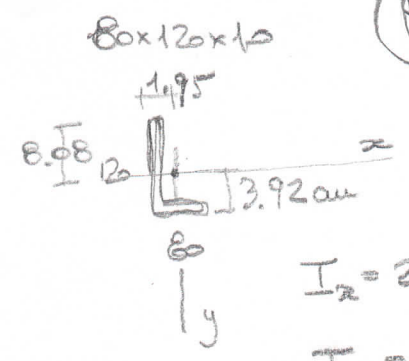 80x120x10
1.95
8.08
120
x
3.92 cm
80
y
I_x = 2